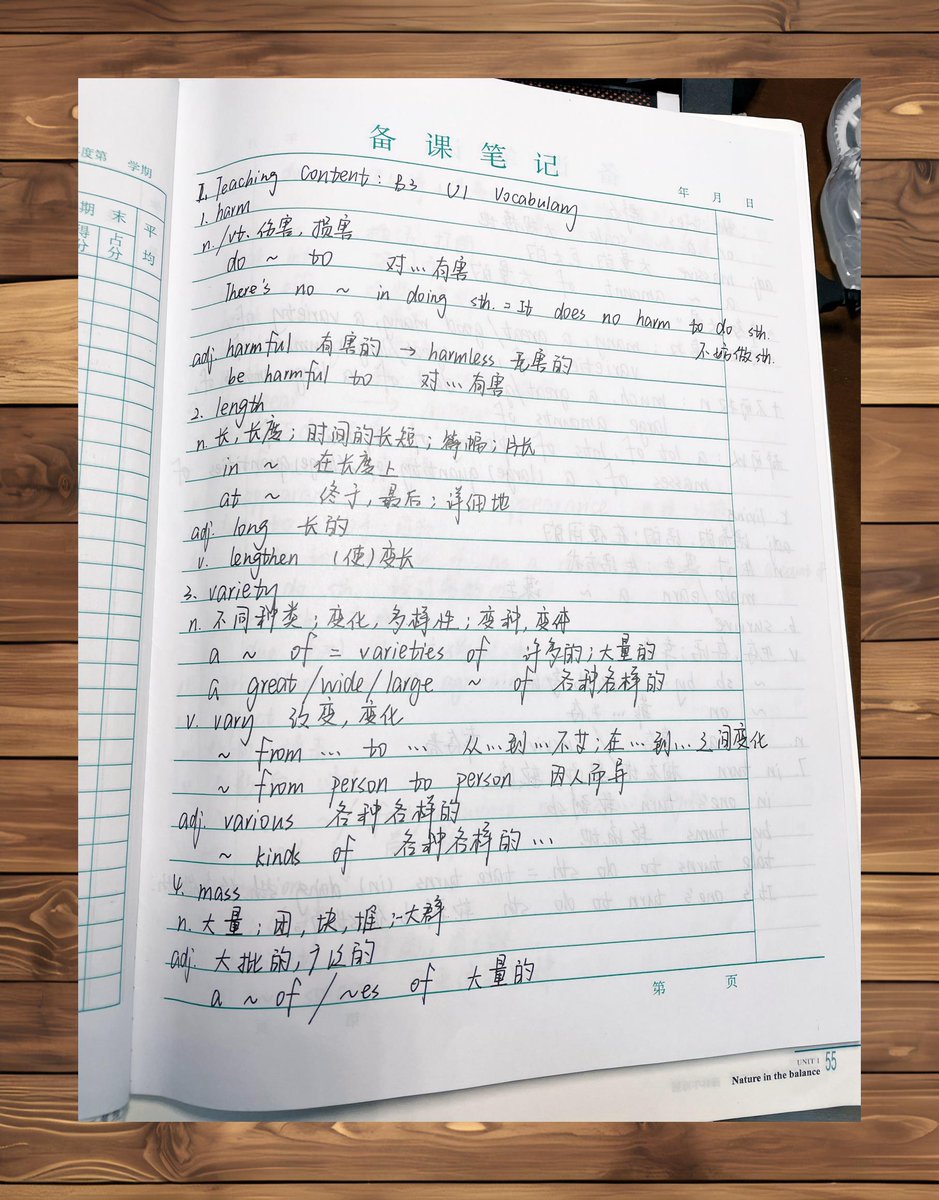 度第 学期
期 末 平
得分 占分 均
备 课 笔 记
年 月 日
I. Teaching Content: B3 U1 Vocabulary
1. harm
n./vt. 伤害, 损害
do ~ to 对…有害
There's no ~ in doing sth. = It does no harm to do sth.
不妨做sth.
adj. harmful 有害的 → harmless 无害的
be harmful to 对…有害
2. length
n. 长, 长度; 时间的长短; 篇幅; 片长
in ~ 在长度上
at ~ 终于, 最后; 详细地
adj. long 长的
v. lengthen (使)变长
3. variety
n. 不同种类; 变化, 多样性; 变种, 变体
a ~ of = varieties of 许多的; 大量的
a great/wide/large ~ of 各种各样的
v. vary 改变, 变化
~ from … to … 从…到…不等; 在…到…之间变化
~ from person to person 因人而异
adj. various 各种各样的
~ kinds of 各种各样的…
4. mass
n. 大量; 团, 块, 堆; 一大群
adj. 大批的, 广泛的
a ~ of / ~es of 大量的
第 页
UNIT 1 55
Nature in the balance